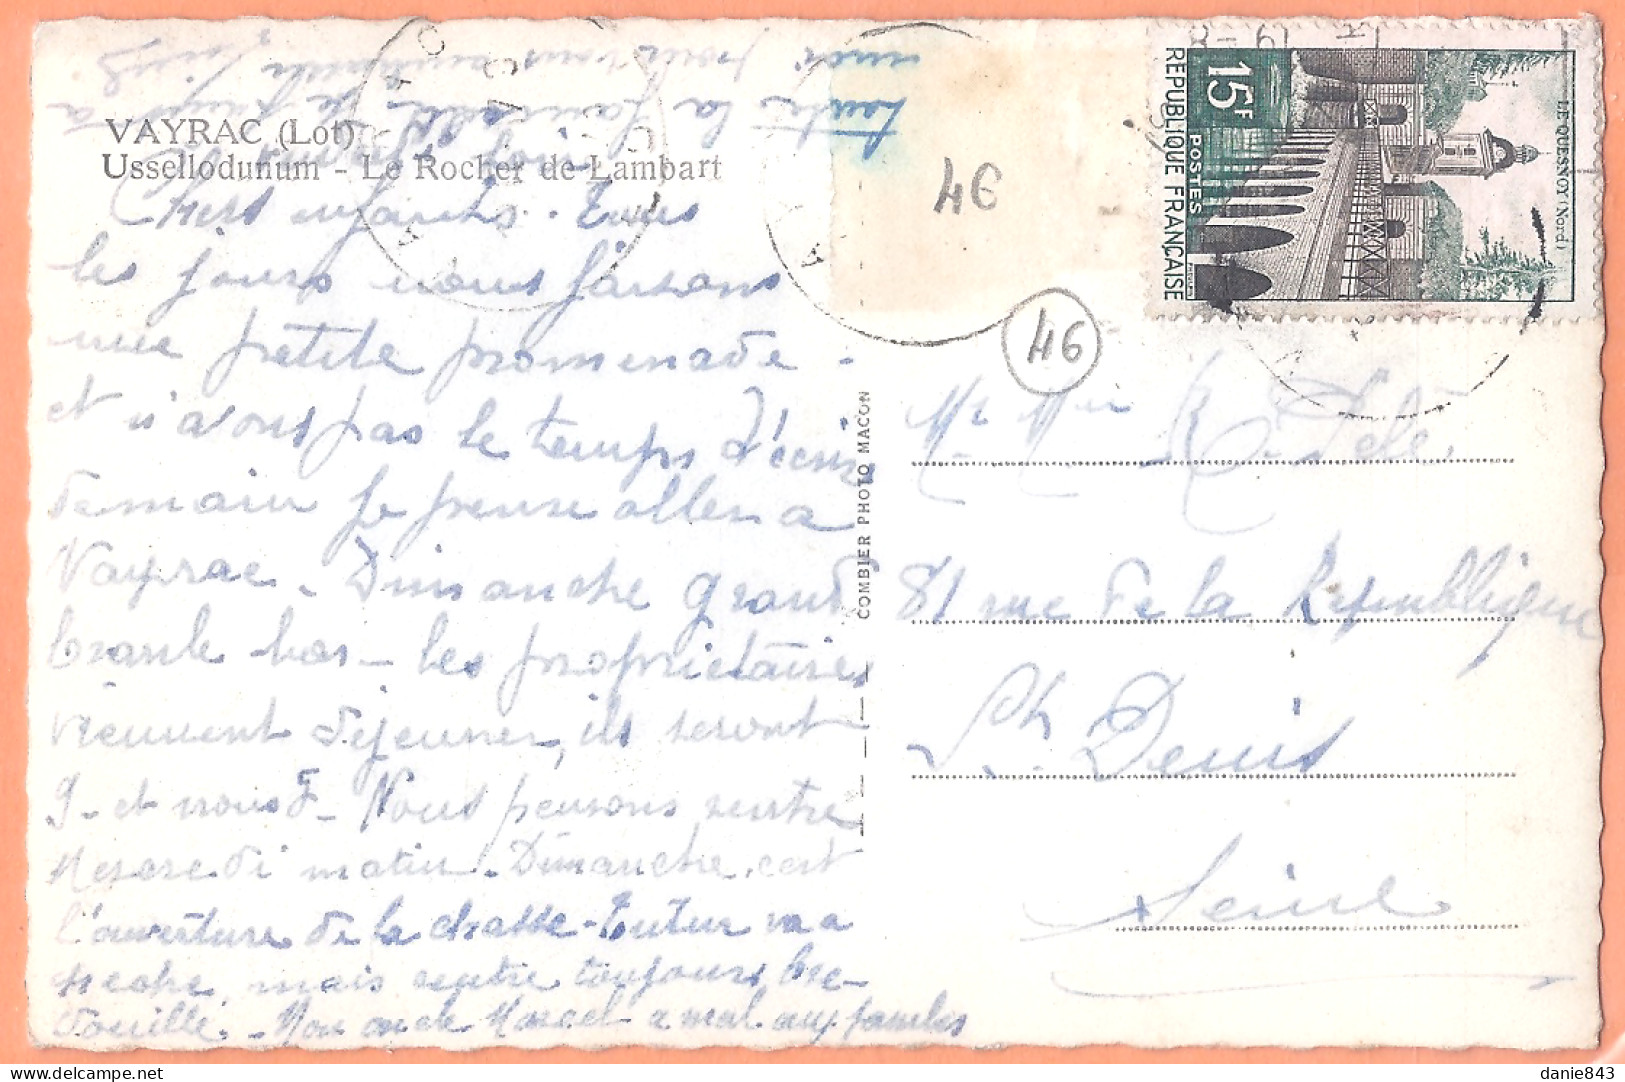 VAYRAC (Lot)
Ussellodunum - Le Rocher de Lambart
Chers enfants. Tous
les jours nous faisons
une petite promenade -
et n'avons pas le temps d'écrire
demain je pense aller a
Vayrac. Dimanche grand
branle bas - les propriétaires
viennent déjeuner, ils seront
9 - et nous 7 - Nous pensons rentrer
Mercredi matin. Dimanche, c'est
l'ouverture de la chasse - Tutur va a
peche, mais rentre toujours bre-
douille. - Marcel a mal aux jambes
toute la famille
pour vous
46
46
15F
POSTES
REPUBLIQUE FRANÇAISE
LE QUESNOY (Nord)
COMBIER PHOTO MACON
Mr Mme
81 rue de la République
St Denis
Seine
danie843